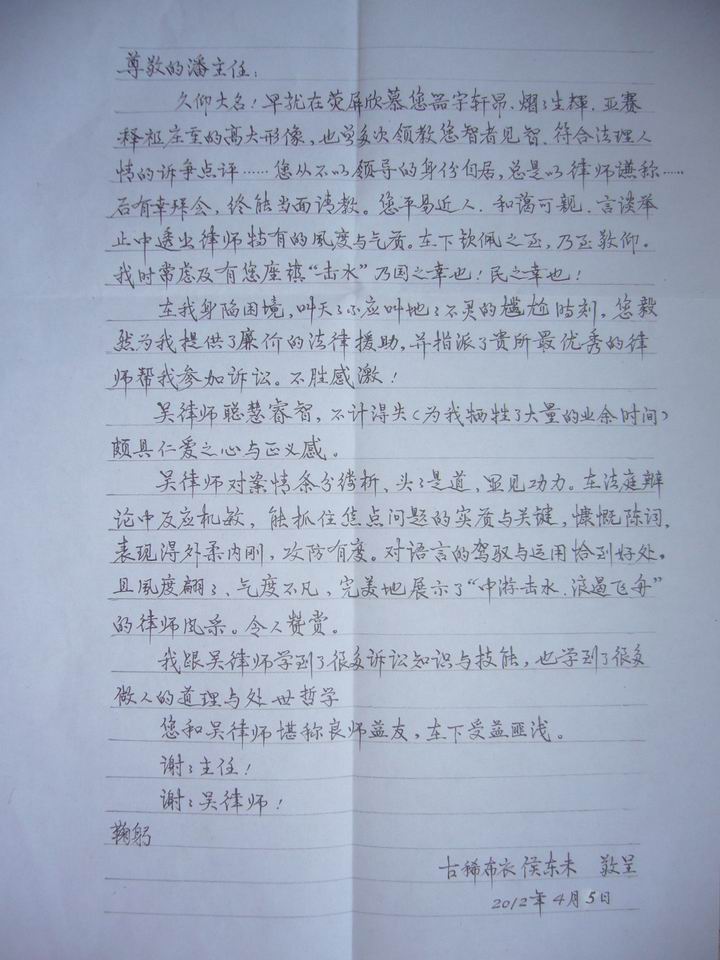 尊敬的潘主任：
久仰大名！早就在荧屏欣慕您器宇轩昂.熠〻生輝.亚赛
释祖庄重的高大形像，也曾多次领教您智者见智.符合法理人
情的诉争点评……您从不以领导的身份自居，总是以律师谦称……
后有幸拜会，终能当面请教。您平易近人.和蔼可親.言谈举
止中透出律师特有的風度与气质。在下钦佩之至，乃至敬仰。
我时常虑及有您座镇“击水”乃国之幸也！民之幸也！
在我身陷困境，叫天〻不应叫地〻不灵的尴尬时刻，您毅
然为我提供了廉价的法律援助，并指派了贵所最优秀的律
师帮我参加诉讼。不胜感激！
吴律师聪慧睿智，不计得失（为我牺牲了大量的业余时间）
颇具仁爱之心与正义感。
吴律师对案情条分缕析、头〻是道，显见功力。在法庭辩
论中反应机敏，能抓住焦点问题的实质与关键，慷慨陈词，
表现得外柔内刚，攻防有度。对语言的驾驭与运用恰到好处。
且風度翩〻、气度不凡，完美地展示了“中游击水.浪遏飞舟”
的律师风采。令人赞赏。
我跟吴律师学到了很多诉讼知识与技能，也学到了很多
做人的道理与处世哲学
您和吴律师堪称良师益友，在下受益匪浅。
谢〻主任！
谢〻吴律师！
鞠躬
古稀布衣侯东未 敬呈
2012年4月5日